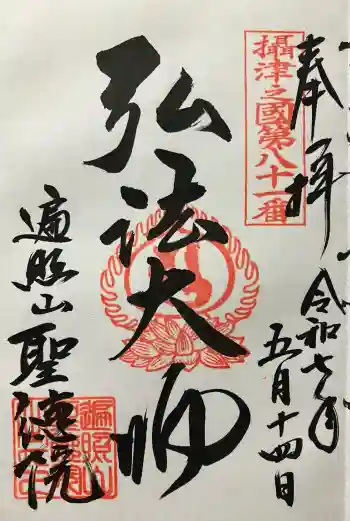 奉拝
令和七年
五月十四日
攝津之國第八十一番
弘法大師
遍照山
聖徳院